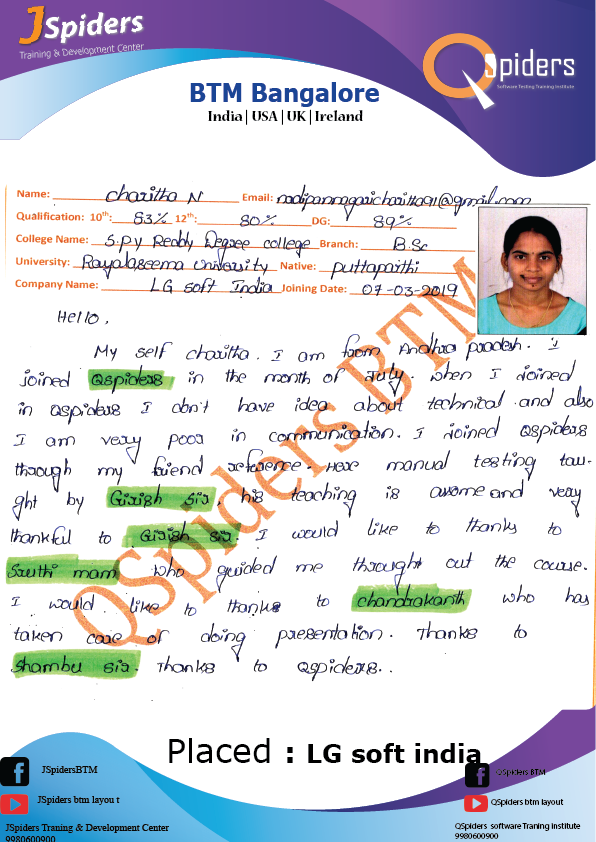 JSpiders
Training & Development Center
QSpiders
Software Testing Training Institute
BTM Bangalore
India | USA | UK | Ireland
Name: charitha N Email: nadipannagaricharitha91@gmail.com
Qualification: 10th: 83% 12th: 80% DG: 89%
College Name: S.P.V Reddy Degree college Branch: B.Sc
University: Rayalaseema University Native: puttaparthi
Company Name: LG soft India Joining Date: 07-03-2019
Hello,
My self charitha. I am from Andhra pradesh. I
joined Qspiders in the month of July. when I joined
in Qspiders I don't have idea about technical and also
I am very poor in communication. I joined QSpiders
through my friend reference. Here manual testing tau-
ght by Girish Sir, his teaching is awome and very
thankful to Girish sir. I would like to thanks to
Sruthi mam who guided me throught out the course.
I would like to thanks to chandrakanth who has
taken care of doing presentation. Thanks to
Shambu sir. Thanks to Qspiders..
QSpiders BTM
Placed : LG soft india
JSpidersBTM
QSpiders BTM
JSpiders btm layou t
QSpiders btm layout
JSpiders Traning & Development Center
9980600900
QSpiders software Traning institute
9980600900